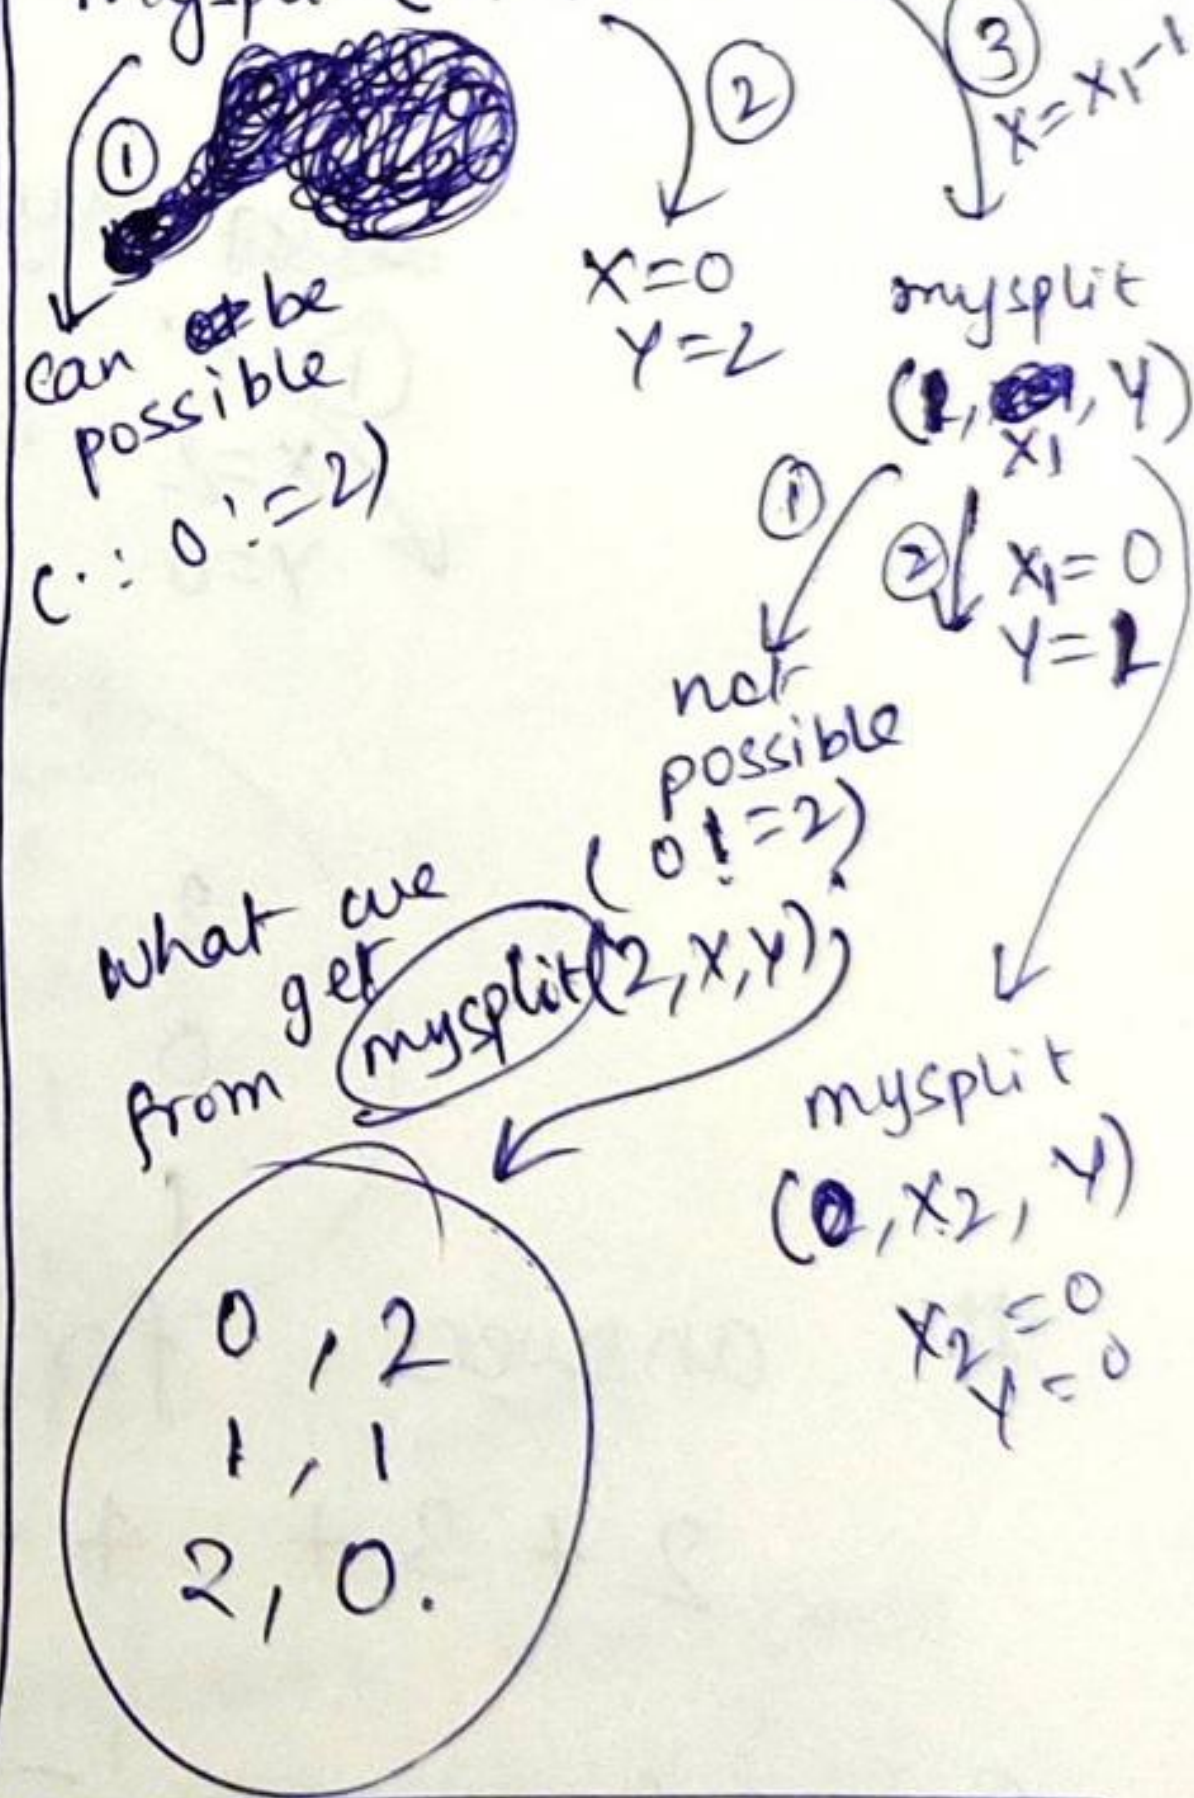 ①
②
③
X=X1-1
can be
possible
(∵ 0!=2)
X=0
Y=2
mysplit
(1, X1, Y)
①
②
X1=0
Y=1
not
possible
(0!=2)
what are
get
from mysplit(2,X,Y);
mysplit
(0,X2,Y)
X2=0
Y=0
0,2
1,1
2,0.